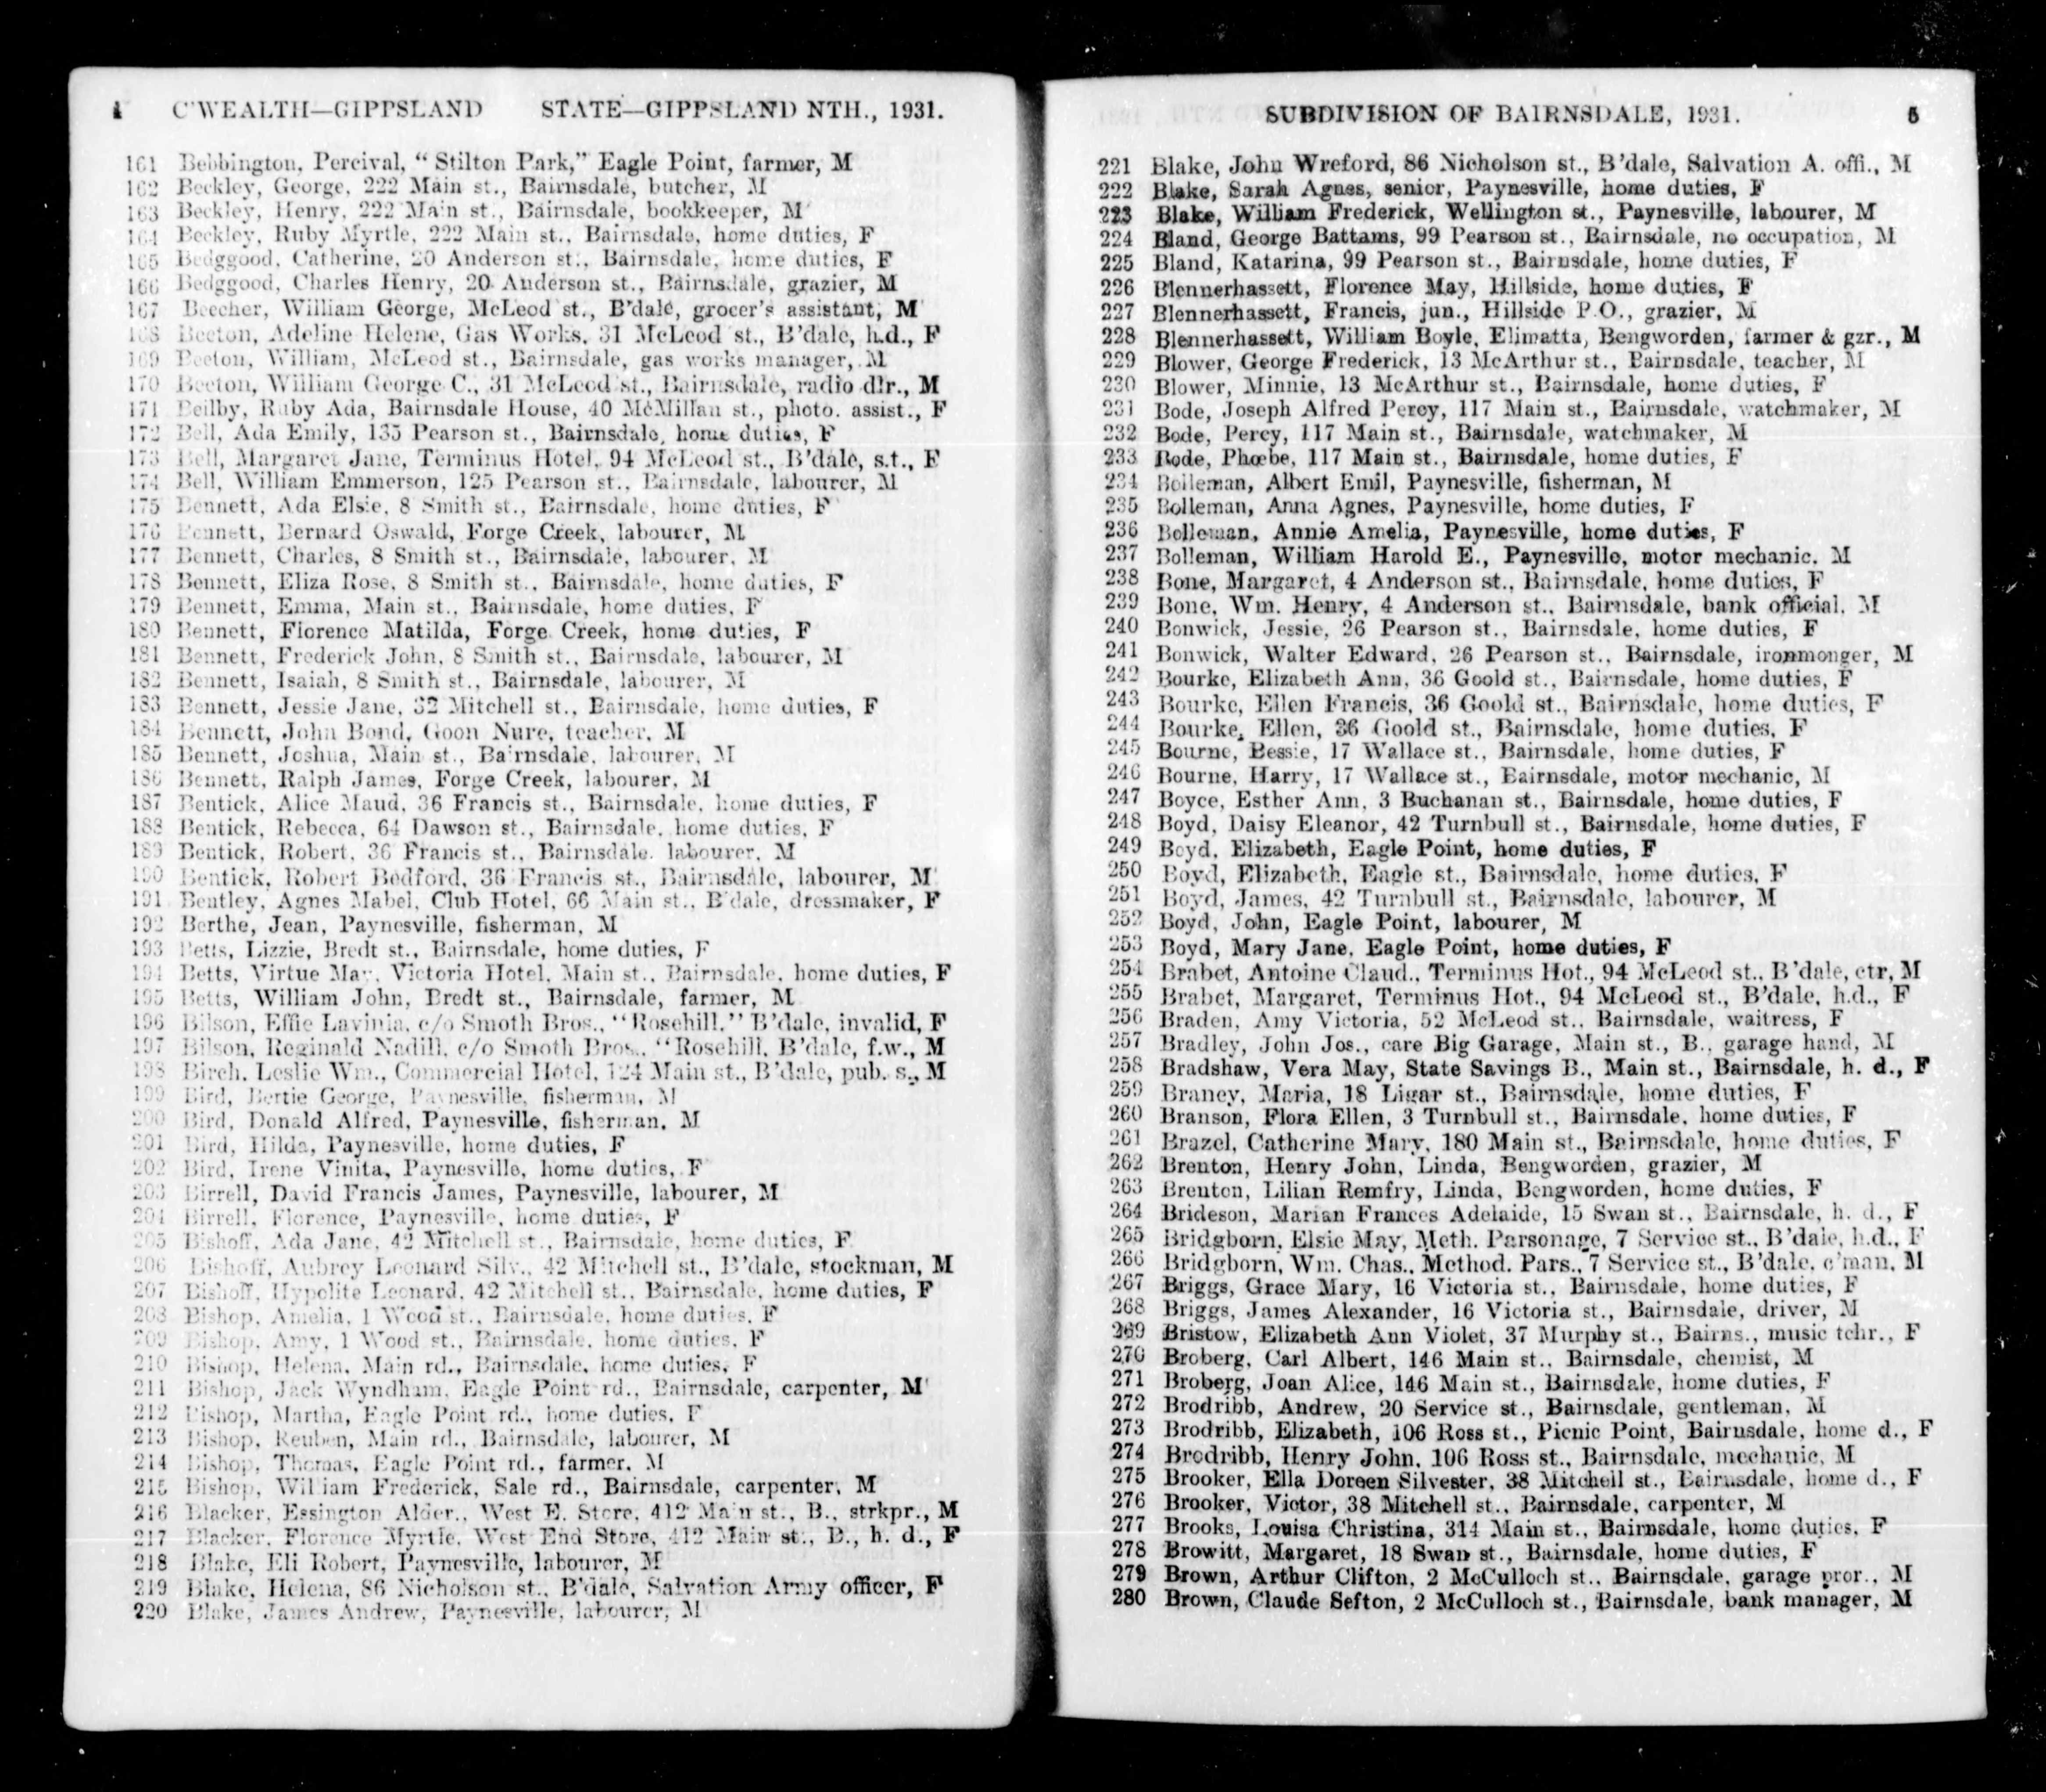 4 C'WEALTH—GIPPSLAND STATE—GIPPSLAND NTH., 1931.
161 Bebbington, Percival, "Stilton Park," Eagle Point, farmer, M
162 Beckley, George, 222 Main st., Bairnsdale, butcher, M
163 Beckley, Henry, 222 Main st., Bairnsdale, bookkeeper, M
164 Beckley, Ruby Myrtle, 222 Main st., Bairnsdale, home duties, F
165 Bedggood, Catherine, 20 Anderson st., Bairnsdale, home duties, F
166 Bedggood, Charles Henry, 20 Anderson st., Bairnsdale, grazier, M
167 Beecher, William George, McLeod st., B'dale, grocer's assistant, M
168 Beeton, Adeline Helene, Gas Works, 31 McLeod st., B'dale, h.d., F
169 Beeton, William, McLeod st., Bairnsdale, gas works manager, M
170 Beeton, William George C., 31 McLeod st., Bairnsdale, radio dlr., M
171 Beilby, Ruby Ada, Bairnsdale House, 40 McMillan st., photo. assist., F
172 Bell, Ada Emily, 135 Pearson st., Bairnsdale, home duties, F
173 Bell, Margaret Jane, Terminus Hotel, 94 McLeod st., B'dale, s.t., F
174 Bell, William Emmerson, 125 Pearson st., Bairnsdale, labourer, M
175 Bennett, Ada Elsie, 8 Smith st., Bairnsdale, home duties, F
176 Bennett, Bernard Oswald, Forge Creek, labourer, M
177 Bennett, Charles, 8 Smith st., Bairnsdale, labourer, M
178 Bennett, Eliza Rose, 8 Smith st., Bairnsdale, home duties, F
179 Bennett, Emma, Main st., Bairnsdale, home duties, F
180 Bennett, Florence Matilda, Forge Creek, home duties, F
181 Bennett, Frederick John, 8 Smith st., Bairnsdale, labourer, M
182 Bennett, Isaiah, 8 Smith st., Bairnsdale, labourer, M
183 Bennett, Jessie Jane, 32 Mitchell st., Bairnsdale, home duties, F
184 Bennett, John Bond, Goon Nure, teacher, M
185 Bennett, Joshua, Main st., Bairnsdale, labourer, M
186 Bennett, Ralph James, Forge Creek, labourer, M
187 Bentick, Alice Maud, 36 Francis st., Bairnsdale, home duties, F
188 Bentick, Rebecca, 64 Dawson st., Bairnsdale, home duties, F
189 Bentick, Robert, 36 Francis st., Bairnsdale, labourer, M
190 Bentick, Robert Bedford, 36 Francis st., Bairnsdale, labourer, M
191 Bentley, Agnes Mabel, Club Hotel, 66 Main st., B'dale, dressmaker, F
192 Berthe, Jean, Paynesville, fisherman, M
193 Betts, Lizzie, Bredt st., Bairnsdale, home duties, F
194 Betts, Virtue May, Victoria Hotel, Main st., Bairnsdale, home duties, F
195 Betts, William John, Bredt st., Bairnsdale, farmer, M
196 Bilson, Effie Lavinia, c/o Smoth Bros., "Rosehill," B'dale, invalid, F
197 Bilson, Reginald Nadill, c/o Smoth Bros., "Rosehill, B'dale, f.w., M
198 Birch, Leslie Wm., Commercial Hotel, 124 Main st., B'dale, pub. s., M
199 Bird, Bertie George, Paynesville, fisherman, M
200 Bird, Donald Alfred, Paynesville, fisherman, M
201 Bird, Hilda, Paynesville, home duties, F
202 Bird, Irene Vinita, Paynesville, home duties, F
203 Birrell, David Francis James, Paynesville, labourer, M
204 Birrell, Florence, Paynesville, home duties, F
205 Bishoff, Ada Jane, 42 Mitchell st., Bairnsdale, home duties, F
206 Bishoff, Aubrey Leonard Silv., 42 Mitchell st., B'dale, stockman, M
207 Bishoff, Hypolite Leonard, 42 Mitchell st., Bairnsdale, home duties, F
208 Bishop, Amelia, 1 Wood st., Bairnsdale, home duties, F
209 Bishop, Amy, 1 Wood st., Bairnsdale, home duties, F
210 Bishop, Helena, Main rd., Bairnsdale, home duties, F
211 Bishop, Jack Wyndham, Eagle Point rd., Bairnsdale, carpenter, M
212 Bishop, Martha, Eagle Point rd., home duties, F
213 Bishop, Reuben, Main rd., Bairnsdale, labourer, M
214 Bishop, Thomas, Eagle Point rd., farmer, M
215 Bishop, William Frederick, Sale rd., Bairnsdale, carpenter, M
216 Blacker, Essington Alder, West E. Store, 412 Main st., B., strkpr., M
217 Blacker, Florence Myrtle, West End Store, 412 Main st., B., h. d., F
218 Blake, Eli Robert, Paynesville, labourer, M
219 Blake, Helena, 86 Nicholson st., B'dale, Salvation Army officer, F
220 Blake, James Andrew, Paynesville, labourer, M
SUBDIVISION OF BAIRNSDALE, 1931. 5
221 Blake, John Wreford, 86 Nicholson st., B'dale, Salvation A. offi., M
222 Blake, Sarah Agnes, senior, Paynesville, home duties, F
223 Blake, William Frederick, Wellington st., Paynesville, labourer, M
224 Bland, George Battams, 99 Pearson st., Bairnsdale, no occupation, M
225 Bland, Katarina, 99 Pearson st., Bairnsdale, home duties, F
226 Blennerhassett, Florence May, Hillside, home duties, F
227 Blennerhassett, Francis, jun., Hillside P.O., grazier, M
228 Blennerhassett, William Boyle, Elimatta, Bengworden, farmer & gzr., M
229 Blower, George Frederick, 13 McArthur st., Bairnsdale, teacher, M
230 Blower, Minnie, 13 McArthur st., Bairnsdale, home duties, F
231 Bode, Joseph Alfred Percy, 117 Main st., Bairnsdale, watchmaker, M
232 Bode, Percy, 117 Main st., Bairnsdale, watchmaker, M
233 Bode, Phœbe, 117 Main st., Bairnsdale, home duties, F
234 Bolleman, Albert Emil, Paynesville, fisherman, M
235 Bolleman, Anna Agnes, Paynesville, home duties, F
236 Bolleman, Annie Amelia, Paynesville, home duties, F
237 Bolleman, William Harold E., Paynesville, motor mechanic, M
238 Bone, Margaret, 4 Anderson st., Bairnsdale, home duties, F
239 Bone, Wm. Henry, 4 Anderson st., Bairnsdale, bank official, M
240 Bonwick, Jessie, 26 Pearson st., Bairnsdale, home duties, F
241 Bonwick, Walter Edward, 26 Pearson st., Bairnsdale, ironmonger, M
242 Bourke, Elizabeth Ann, 36 Goold st., Bairnsdale, home duties, F
243 Bourke, Ellen Francis, 36 Goold st., Bairnsdale, home duties, F
244 Bourke, Ellen, 36 Goold st., Bairnsdale, home duties, F
245 Bourne, Bessie, 17 Wallace st., Bairnsdale, home duties, F
246 Bourne, Harry, 17 Wallace st., Bairnsdale, motor mechanic, M
247 Boyce, Esther Ann, 3 Buchanan st., Bairnsdale, home duties, F
248 Boyd, Daisy Eleanor, 42 Turnbull st., Bairnsdale, home duties, F
249 Boyd, Elizabeth, Eagle Point, home duties, F
250 Boyd, Elizabeth, Eagle st., Bairnsdale, home duties, F
251 Boyd, James, 42 Turnbull st., Bairnsdale, labourer, M
252 Boyd, John, Eagle Point, labourer, M
253 Boyd, Mary Jane, Eagle Point, home duties, F
254 Brabet, Antoine Claud., Terminus Hot., 94 McLeod st., B'dale, ctr, M
255 Brabet, Margaret, Terminus Hot., 94 McLeod st., B'dale, h.d., F
256 Braden, Amy Victoria, 52 McLeod st., Bairnsdale, waitress, F
257 Bradley, John Jos., care Big Garage, Main st., B., garage hand, M
258 Bradshaw, Vera May, State Savings B., Main st., Bairnsdale, h. d., F
259 Braney, Maria, 18 Ligar st., Bairnsdale, home duties, F
260 Branson, Flora Ellen, 3 Turnbull st., Bairnsdale, home duties, F
261 Brazel, Catherine Mary, 180 Main st., Bairnsdale, home duties, F
262 Brenton, Henry John, Linda, Bengworden, grazier, M
263 Brenton, Lilian Remfry, Linda, Bengworden, home duties, F
264 Brideson, Marian Frances Adelaide, 15 Swan st., Bairnsdale, h. d., F
265 Bridgborn, Elsie May, Meth. Parsonage, 7 Service st., B'dale, h.d., F
266 Bridgborn, Wm. Chas., Method. Pars., 7 Service st., B'dale, c'man, M
267 Briggs, Grace Mary, 16 Victoria st., Bairnsdale, home duties, F
268 Briggs, James Alexander, 16 Victoria st., Bairnsdale, driver, M
269 Bristow, Elizabeth Ann Violet, 37 Murphy st., Bairns., music tchr., F
270 Broberg, Carl Albert, 146 Main st., Bairnsdale, chemist, M
271 Broberg, Joan Alice, 146 Main st., Bairnsdale, home duties, F
272 Brodribb, Andrew, 20 Service st., Bairnsdale, gentleman, M
273 Brodribb, Elizabeth, 106 Ross st., Picnic Point, Bairnsdale, home d., F
274 Brodribb, Henry John, 106 Ross st., Bairnsdale, mechanic, M
275 Brooker, Ella Doreen Silvester, 38 Mitchell st., Bairnsdale, home d., F
276 Brooker, Victor, 38 Mitchell st., Bairnsdale, carpenter, M
277 Brooks, Louisa Christina, 314 Main st., Bairnsdale, home duties, F
278 Browitt, Margaret, 18 Swan st., Bairnsdale, home duties, F
279 Brown, Arthur Clifton, 2 McCulloch st., Bairnsdale, garage pror., M
280 Brown, Claude Sefton, 2 McCulloch st., Bairnsdale, bank manager, M